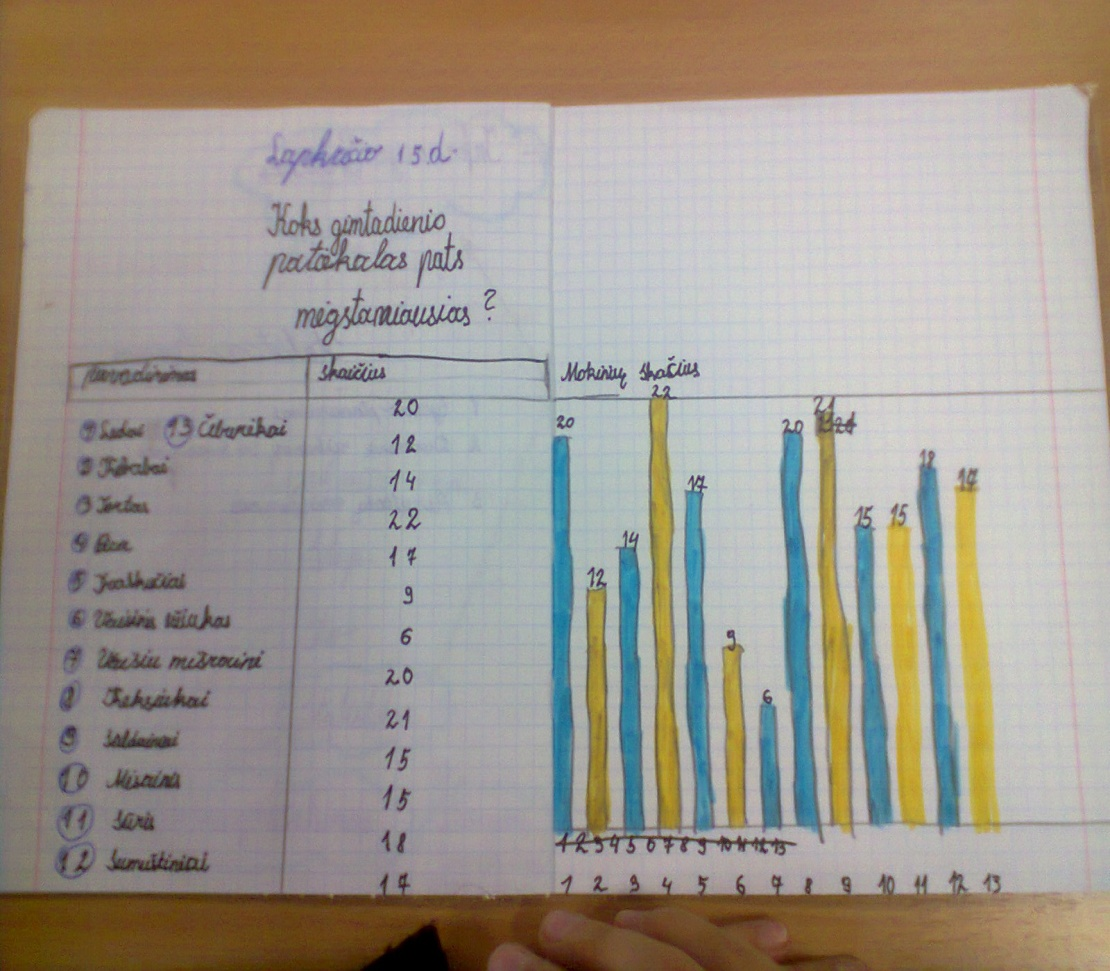 Lapkričio 15 d.
Koks gimtadienio
patiekalas pats
mėgstamiausias ?
Pavadinimas skaičius Mokinių skačius
① Ledai ⑬ Čeburėkai 20
② Kebabai 12
③ Tortas 14
④ Pica 22
⑤ 17
⑥ Vaisinis 9
⑦ Vaisių mišrainė 6
⑧ Keksiukai 20
⑨ Saldainiai 21
⑩ Mėsainis 15
⑪ Sūris 15
⑫ Sumuštiniai 18
17
20 12 14 22 17 9 6 20 21 15 15 18 17
1 2 3 4 5 6 7 8 9 10 11 12 13
1 2 3 4 5 6 7 8 9 10 11 12 13